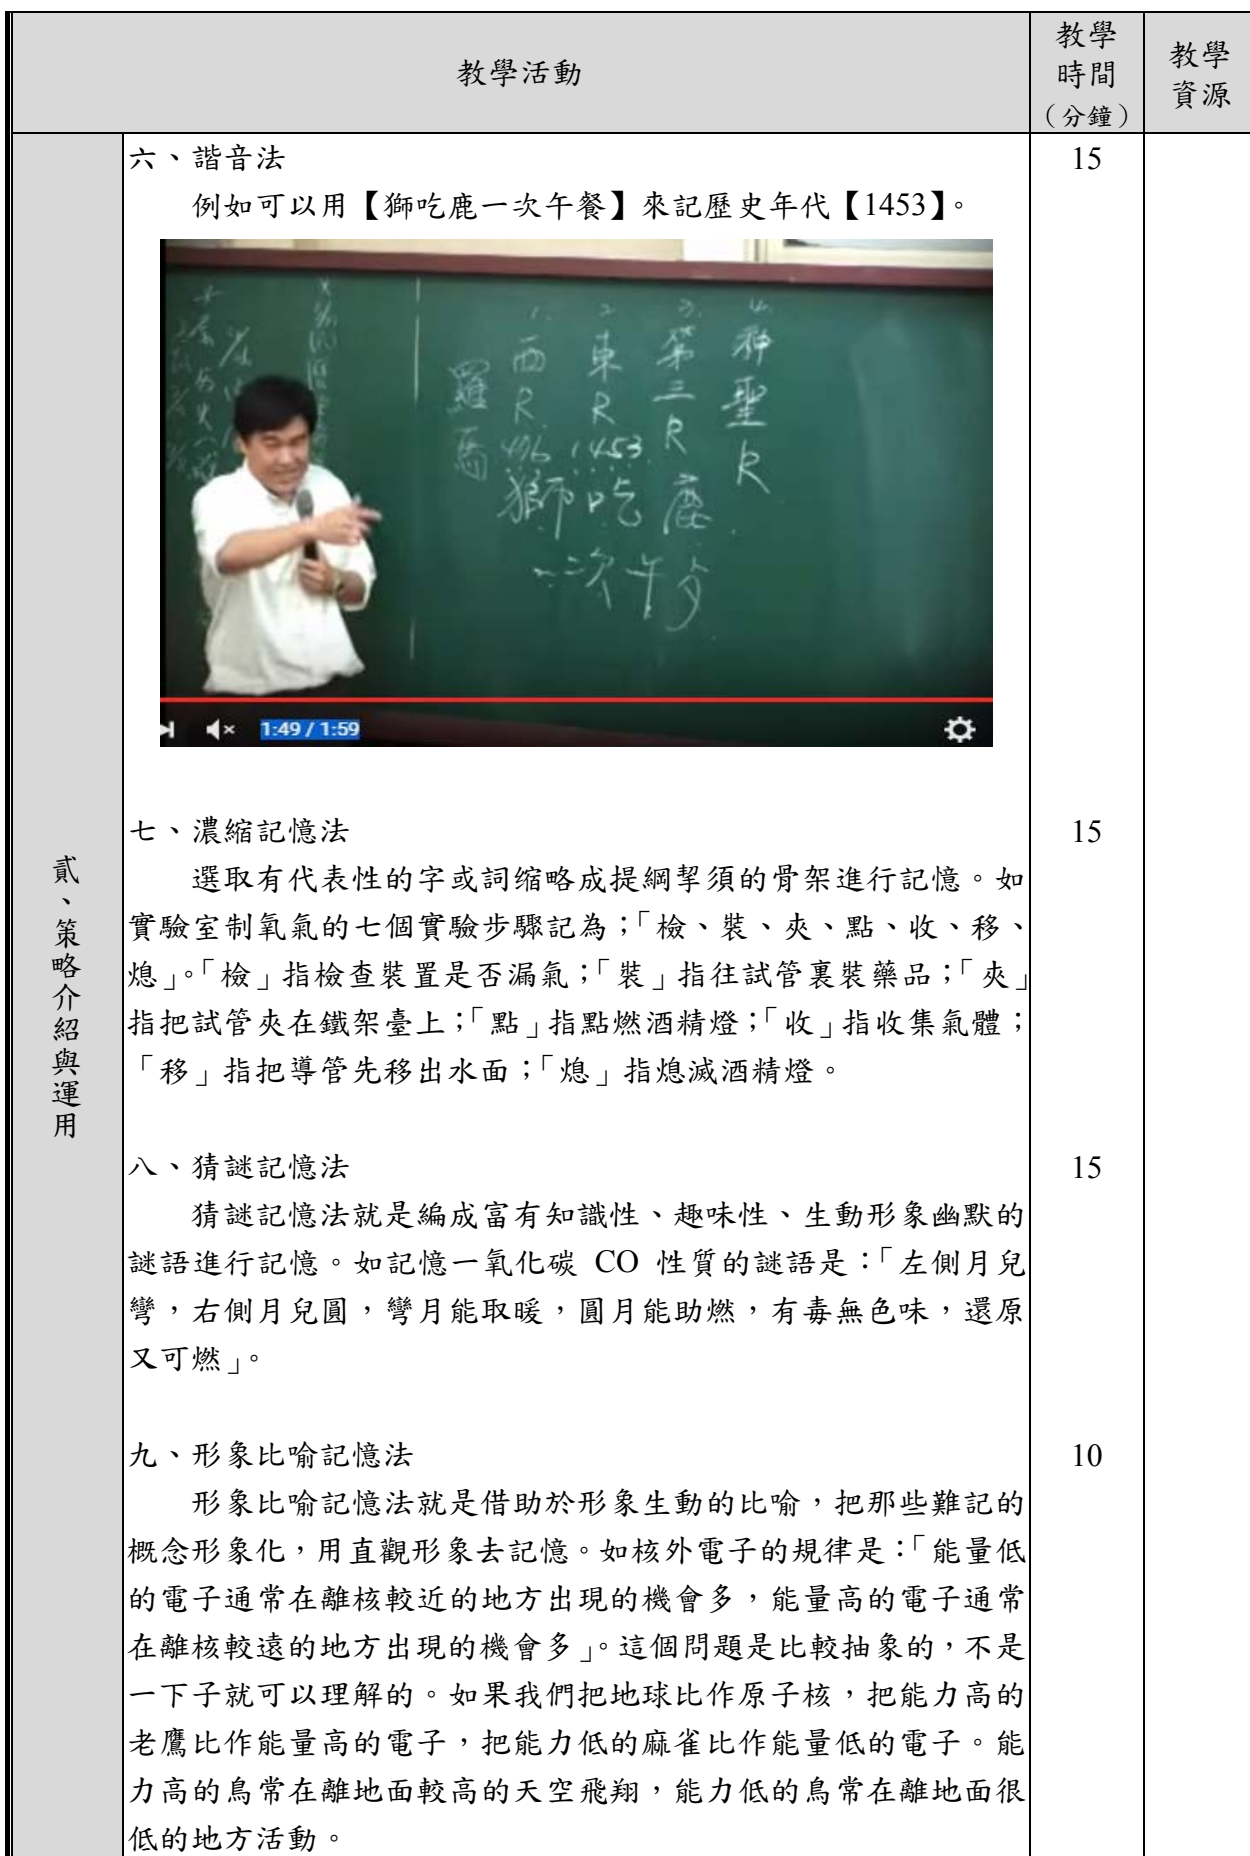 教學活動
教學
時間
(分鐘)
教學
資源
貳、策略介紹與運用
六、諧音法
15
例如可以用【獅吃鹿一次午餐】來記歷史年代【1453】。
1.
2
3.
4.
西R
東R
第三R
神聖R
羅馬
476
1453
獅吃鹿
1:49 / 1:59
七、濃縮記憶法
15
選取有代表性的字或詞縮略成提綱挈須的骨架進行記憶。如
實驗室制氧氣的七個實驗步驟記為;「檢、裝、夾、點、收、移、
熄」。「檢」指檢查裝置是否漏氣;「裝」指往試管裏裝藥品;「夾」
指把試管夾在鐵架臺上;「點」指點燃酒精燈;「收」指收集氣體;
「移」指把導管先移出水面;「熄」指熄滅酒精燈。
八、猜謎記憶法
15
猜謎記憶法就是編成富有知識性、趣味性、生動形象幽默的
謎語進行記憶。如記憶一氧化碳 CO 性質的謎語是:「左側月兒
彎,右側月兒圓,彎月能取暖,圓月能助燃,有毒無色味,還原
又可燃」。
九、形象比喻記憶法
10
形象比喻記憶法就是借助於形象生動的比喻,把那些難記的
概念形象化,用直觀形象去記憶。如核外電子的規律是:「能量低
的電子通常在離核較近的地方出現的機會多,能量高的電子通常
在離核較遠的地方出現的機會多」。這個問題是比較抽象的,不是
一下子就可以理解的。如果我們把地球比作原子核,把能力高的
老鷹比作能量高的電子,把能力低的麻雀比作能量低的電子。能
力高的鳥常在離地面較高的天空飛翔,能力低的鳥常在離地面很
低的地方活動。